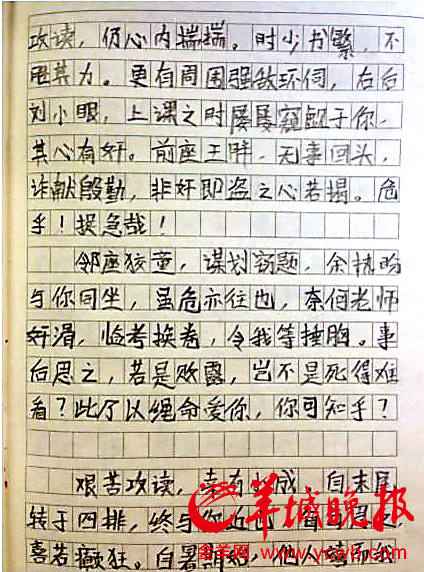 攻读，仍心内惴惴。时少书繁，不
胜其力。更有周围强敌环伺，右后
刘小眼，上课之时屡屡窥觎于你，
其心有奸。前座王胖，无事回头，
诈献殷勤，非奸即盗之心若揭。危
乎！捉急哉！
邻座狡童，谋划窃题，余犹盼
与你同坐，虽危亦往也，奈何老师
奸滑，临考换卷，令我等捶胸。事
后思之，若是败露，岂不是死得难
看？此乃以绳命爱你，你可知乎？
艰苦攻读，幸有小成，自末尾
转于四排，终与你近也
喜若癫狂。白暑期始，他人嬉而我
羊城晚报
金羊网 www.ycwb.com